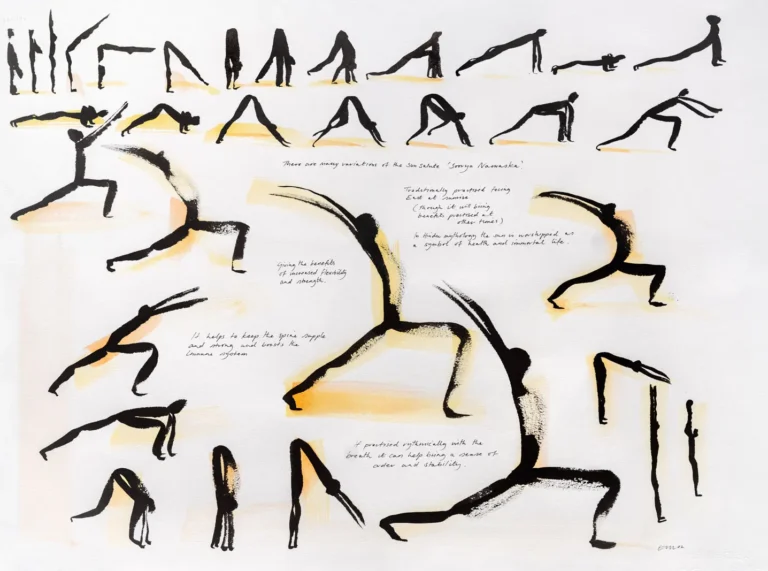 There are many variations of the sun salute 'Soorya Namaskar'.
Traditionally practised facing
East at sunrise
(though it will bring
benefits practised at
other times)
In Hindu mythology the sun is worshipped as
a symbol of health and immortal life.
Giving the benefits
of increased flexibility
and strength.
It helps to keep the spine supple
and strong and boosts the
immune system
If practised rythmically with the
breath it can help bring a sense of
order and stability.